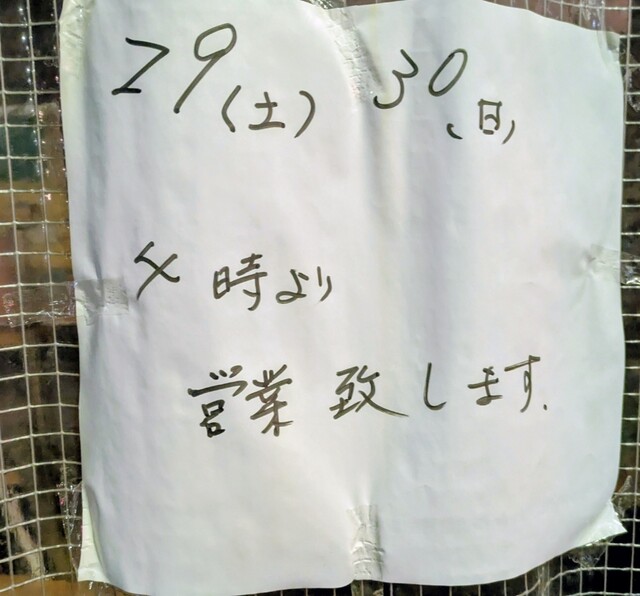 29(土) 30(日)
4時より
営業致します.